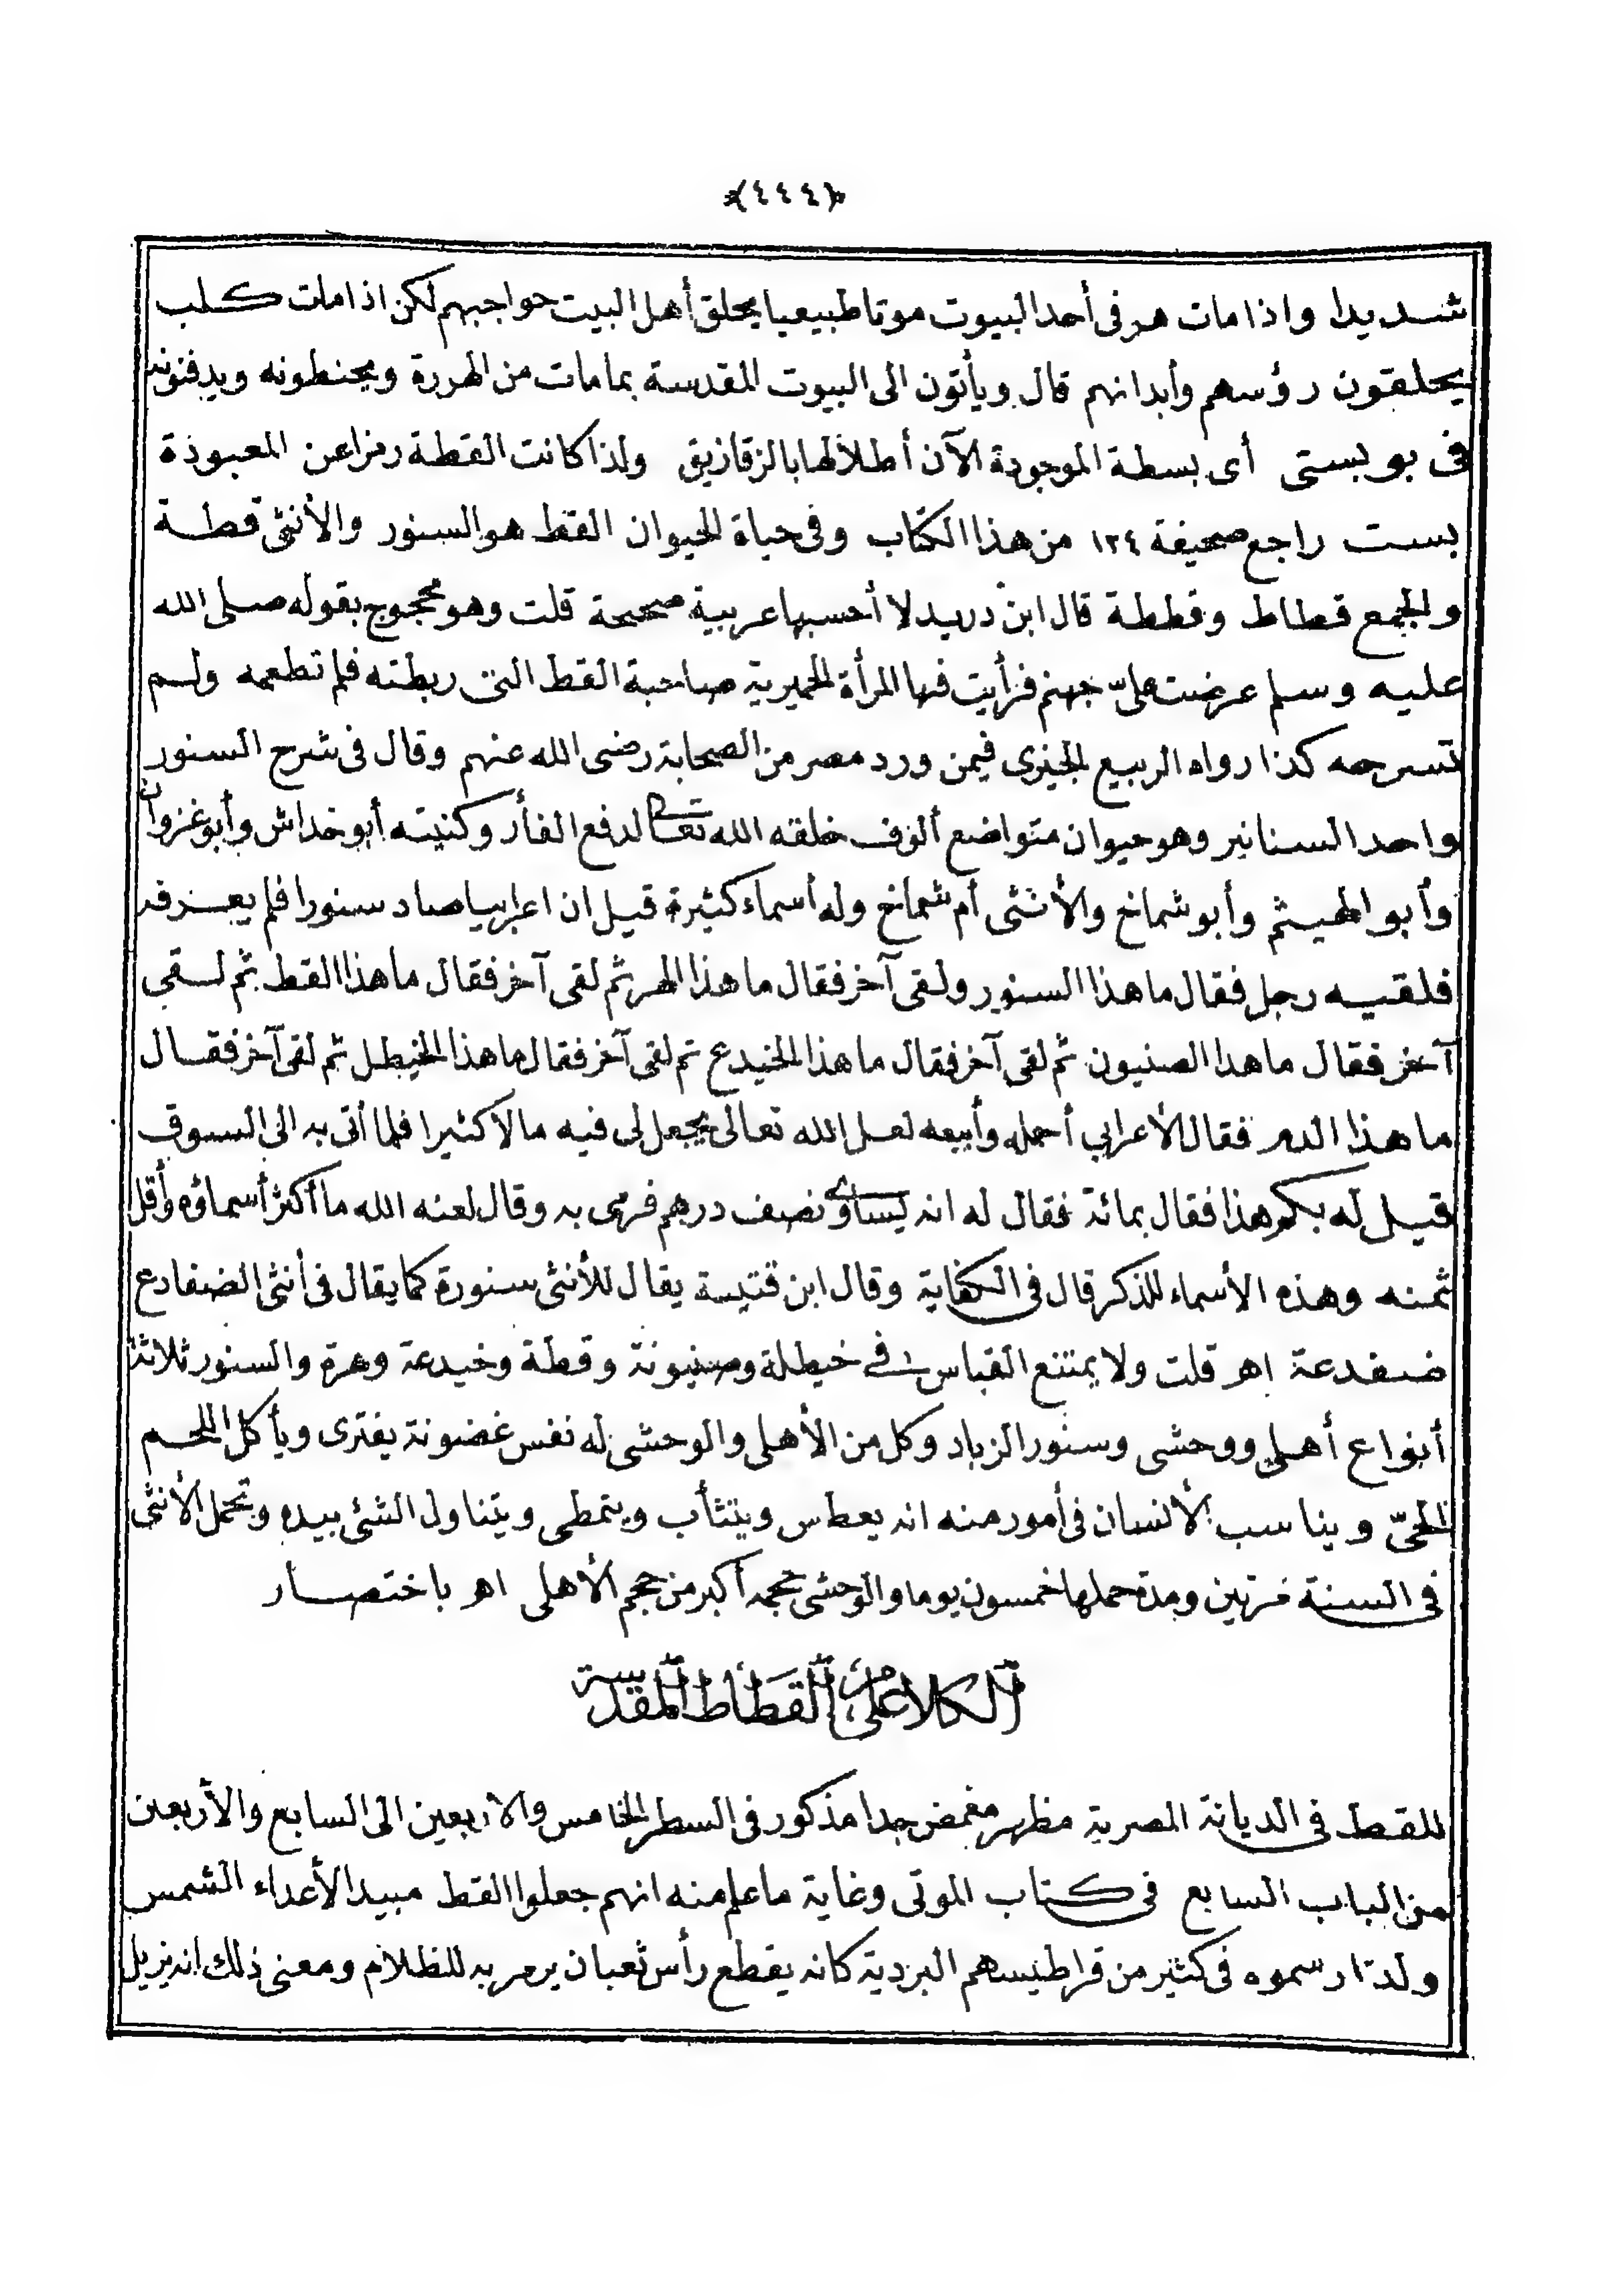 ﴿٤٤٤﴾
شديدا واذا مات هر فى أحد البيوت موتا طبيعيا يحلق أهل البيت حواجبهم لكن اذا مات كلب
يحلقون رؤسهم وأبدانهم قال ويأتون الى البيوت المقدسة بما مات من الهررة ويحنطونه ويدفنونه
فى بوبستى أى بسطة الموجودة الآن أطلالها بالزقازيق ولذا كانت القطة رمزا عن المعبودة
بست راجع صحيفة ١٢٤ من هذا الكتاب وفى حياة الحيوان القط هو السنور والأنثى قطة
والجمع قطاط وقططة قال ابن دريد لا أحسبها عربية صحيحة قلت وهو محجوج بقوله صلى الله
عليه وسلم عرضت علىّ جهنم فرأيت فيها المرأة الحميرية صاحبة القط التى ربطته فلم تطعمه ولم
تسرحه كذا رواه الربيع الجيزى فيمن ورد مصر من الصحابة رضى الله عنهم وقال فى شرح السنور
واحد السنانير وهو حيوان متواضع ألوف خلقه الله تعالى لدفع الفأر وكنيته أبو خداش وأبو غزوان
وأبو الهيثم وأبو شماخ والأنثى أم شماخ وله أسماء كثيرة قيل ان اعرابيا صاد سنورا فلم يعرفه
فلقيه رجل فقال ما هذا السنور ولقى آخر فقال ما هذا الهر ثم لقى آخر فقال ما هذا القط ثم لقى
آخر فقال ما هذا الصنيون ثم لقى آخر فقال ما هذا الخيدع ثم لقى آخر فقال ما هذا الخيطل ثم لقى آخر فقال
ما هذا الدم فقال الأعرابي أحمله وأبيعه لعل الله تعالى يجعل لى فيه مالا كثيرا فلما أتى به الى السوق
قيل له بكم هذا فقال بمائة فقال له انه يساوى نصف درهم فرمى به وقال لعنه الله ما أكثر أسماؤه وأقل
ثمنه وهذه الأسماء للذكر قال فى الكفاية وقال ابن قتيبة يقال للأنثى سنورة كما يقال فى أنثى الضفادع
ضفدعة اهر قلت ولا يمتنع القياس فى خيطلة وصنيونة وقطة وخيدعة وهرة والسنور ثلاثة
أنواع أهلى ووحشى وسنور الزباد وكل من الأهلى والوحشى له نفس غضوبة يفترى ويأكل اللحم
الحىّ ويناسب الأنسان فى أمور منه انه يعطس ويتثأب ويتمطى ويتناول الشئ بيده وتحمل الأنثى
فى السنة مرتين ومدة حملها خمسون يوما والوحشى حجمه أكبر من حجم الأهلى اهر باختصار
الكلام على القطاط المقدسة
للقط فى الديانة المصرية مظهر مغمض جدا مذكور فى السطر الخامس والاربعين الى السابع والأربعين
من الباب السابع فى كتاب الموتى وغاية ما علم منه انهم جعلوا القط مبيدا لأعداء الشمس
ولذا رسموه فى كثير من قراطيسهم البردية كانه يقطع رأس ثعبان يرمز به للظلام ومعنى ذلك انه يزيل